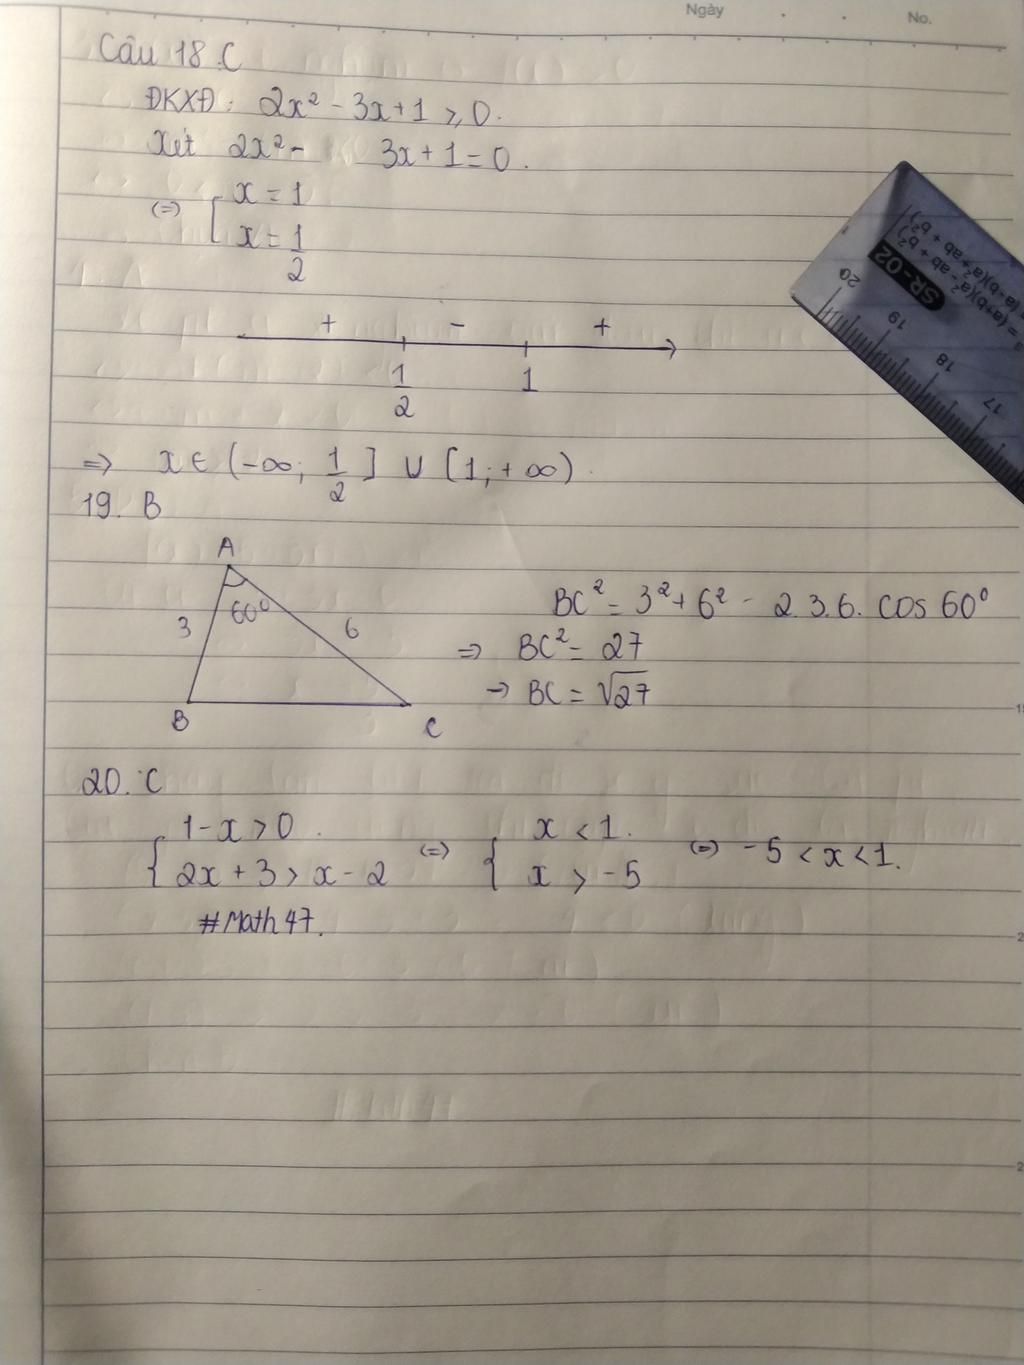 Ngày
No.
Câu 18.C
ĐKXĐ: 2x² - 3x+1 ≥ 0.
Xét 2x² - 3x+1=0.
(=) [ x = 1
x = 1/2
+ - +
1/2 1
=> x ∈ (-∞; 1/2] ∪ [1; +∞).
19. B
A
3 60° 6
B C
BC² = 3²+6² - 2.3.6. cos 60°
=> BC² = 27
-> BC = √27
20. C
{ 1-x > 0. (=) { x < 1. (=) -5 < x < 1.
2x + 3 > x - 2 x > -5
#Math 47.
SR-02
20 19 18 17